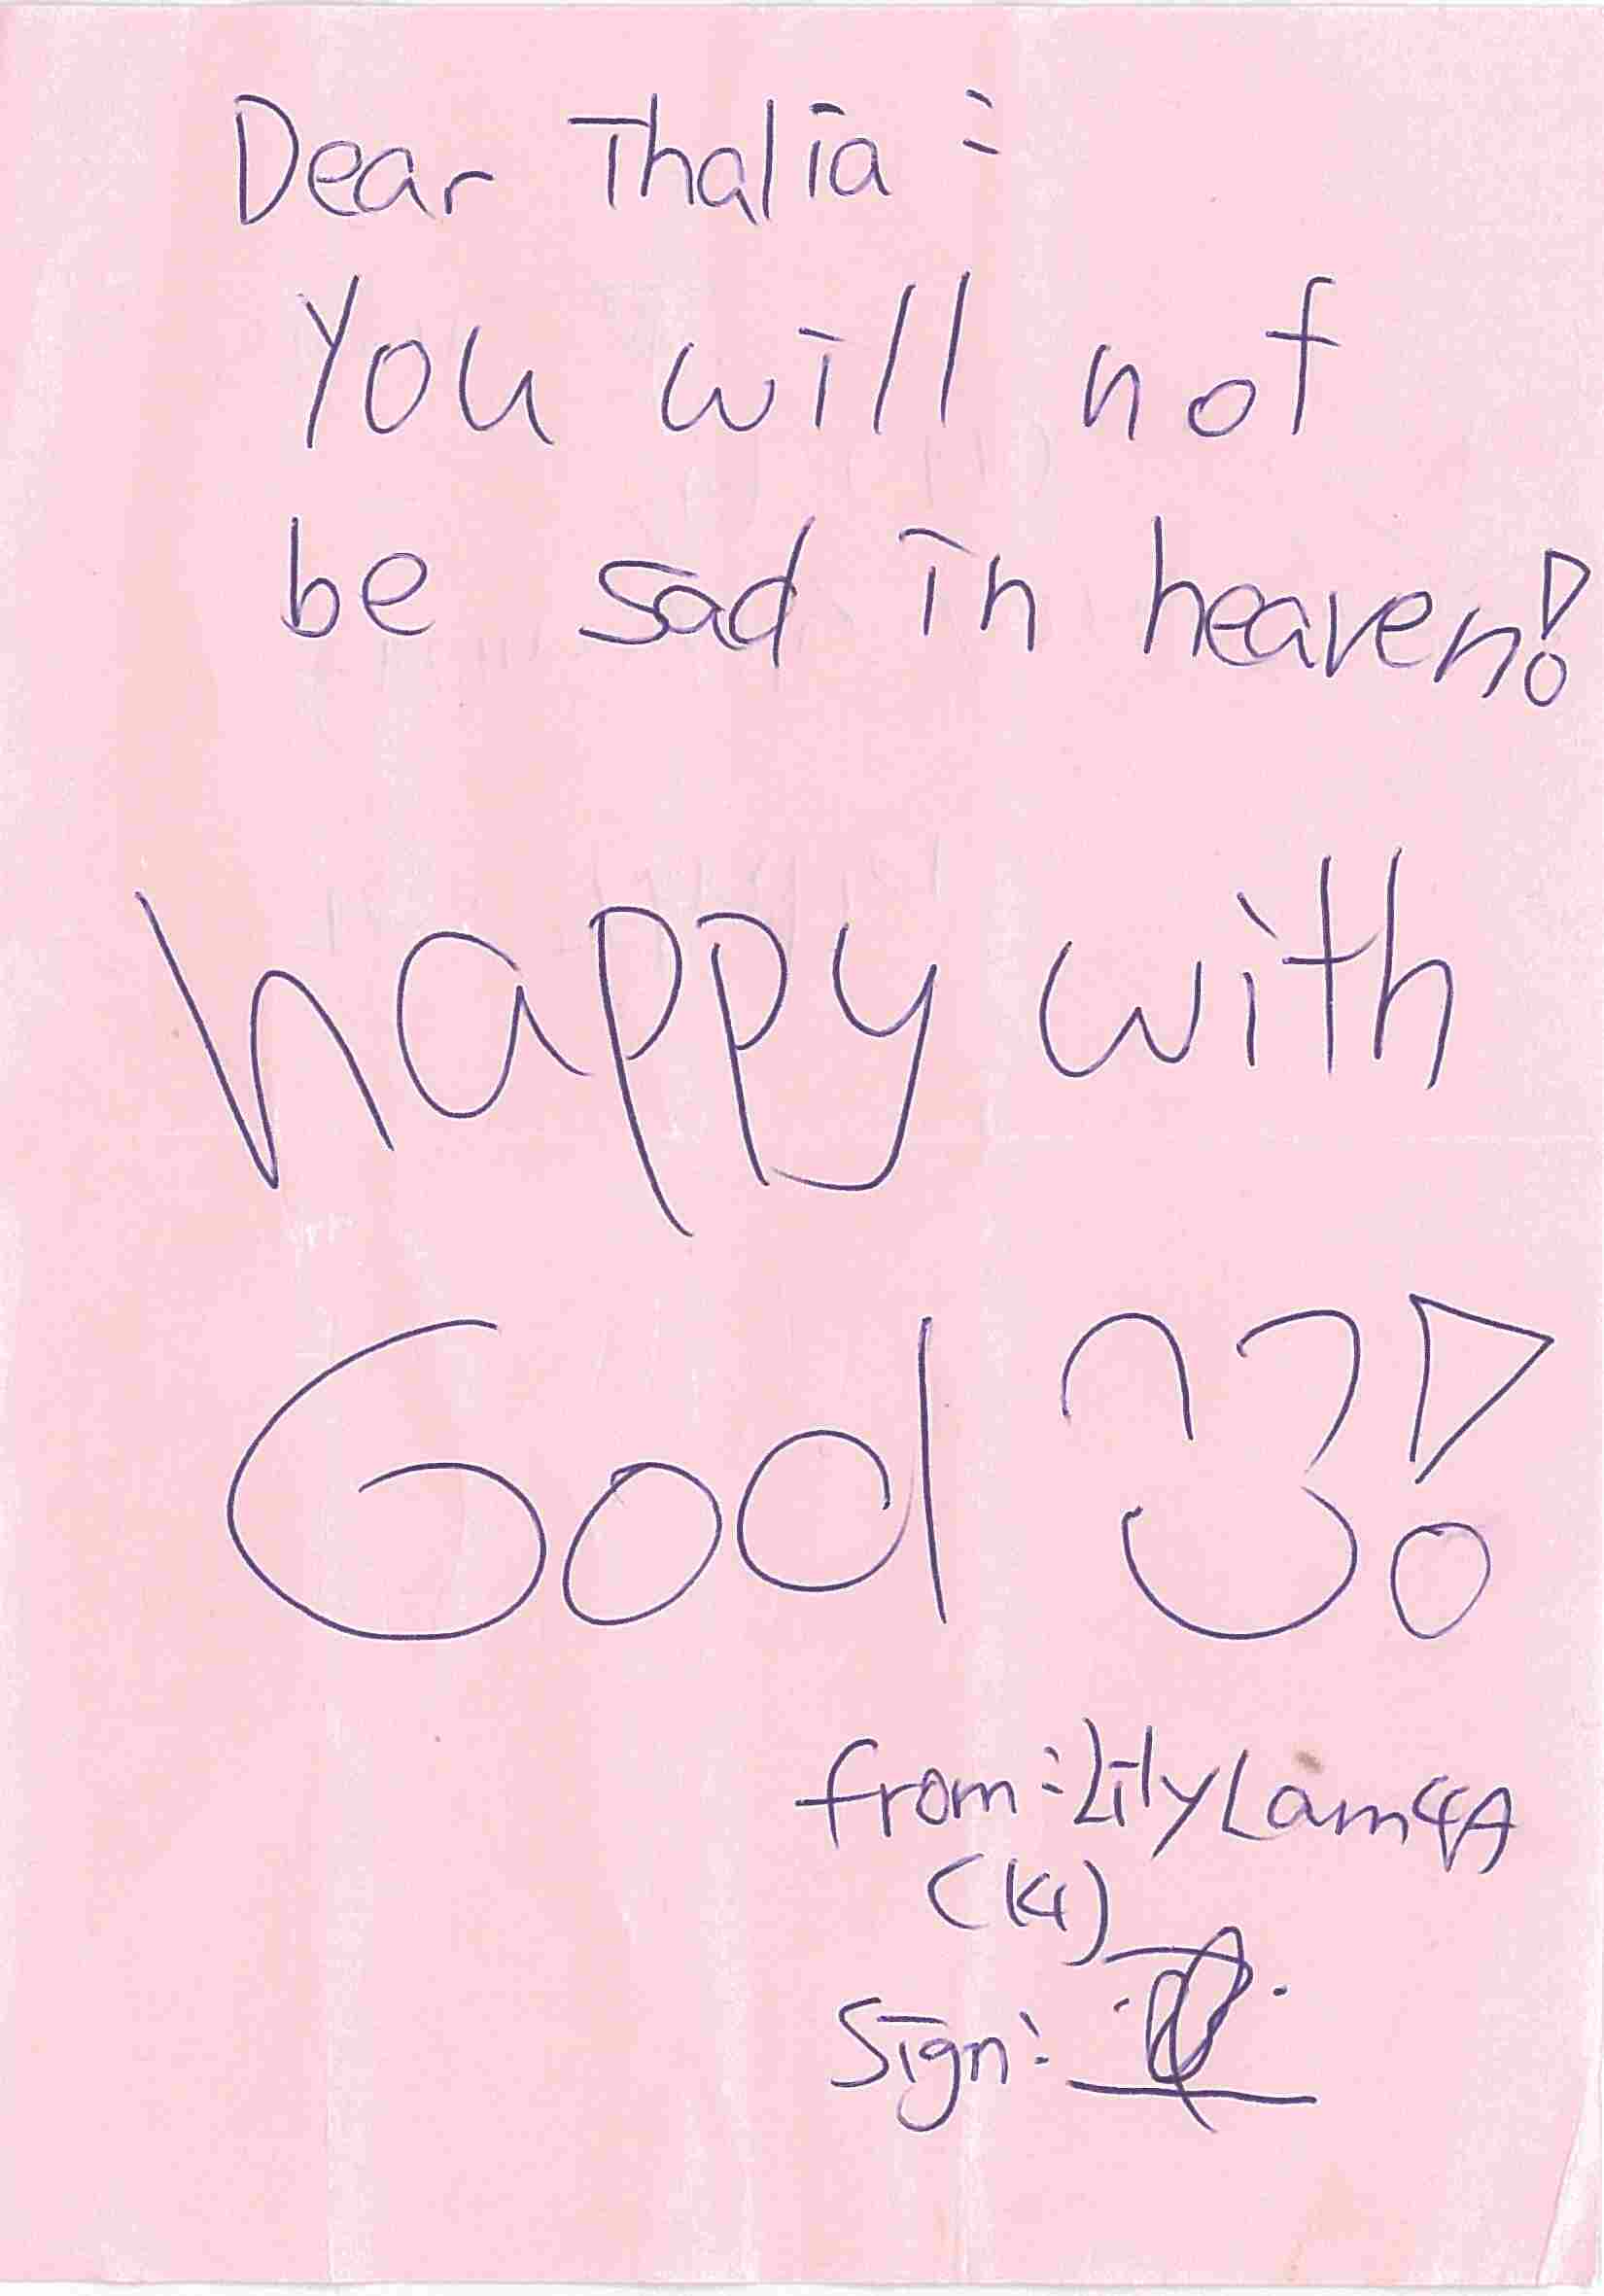 Dear Thalia:
You will not
be sad in heaven!
happy with
God !
from: Lily Lam 4A
(K1)
Sign: